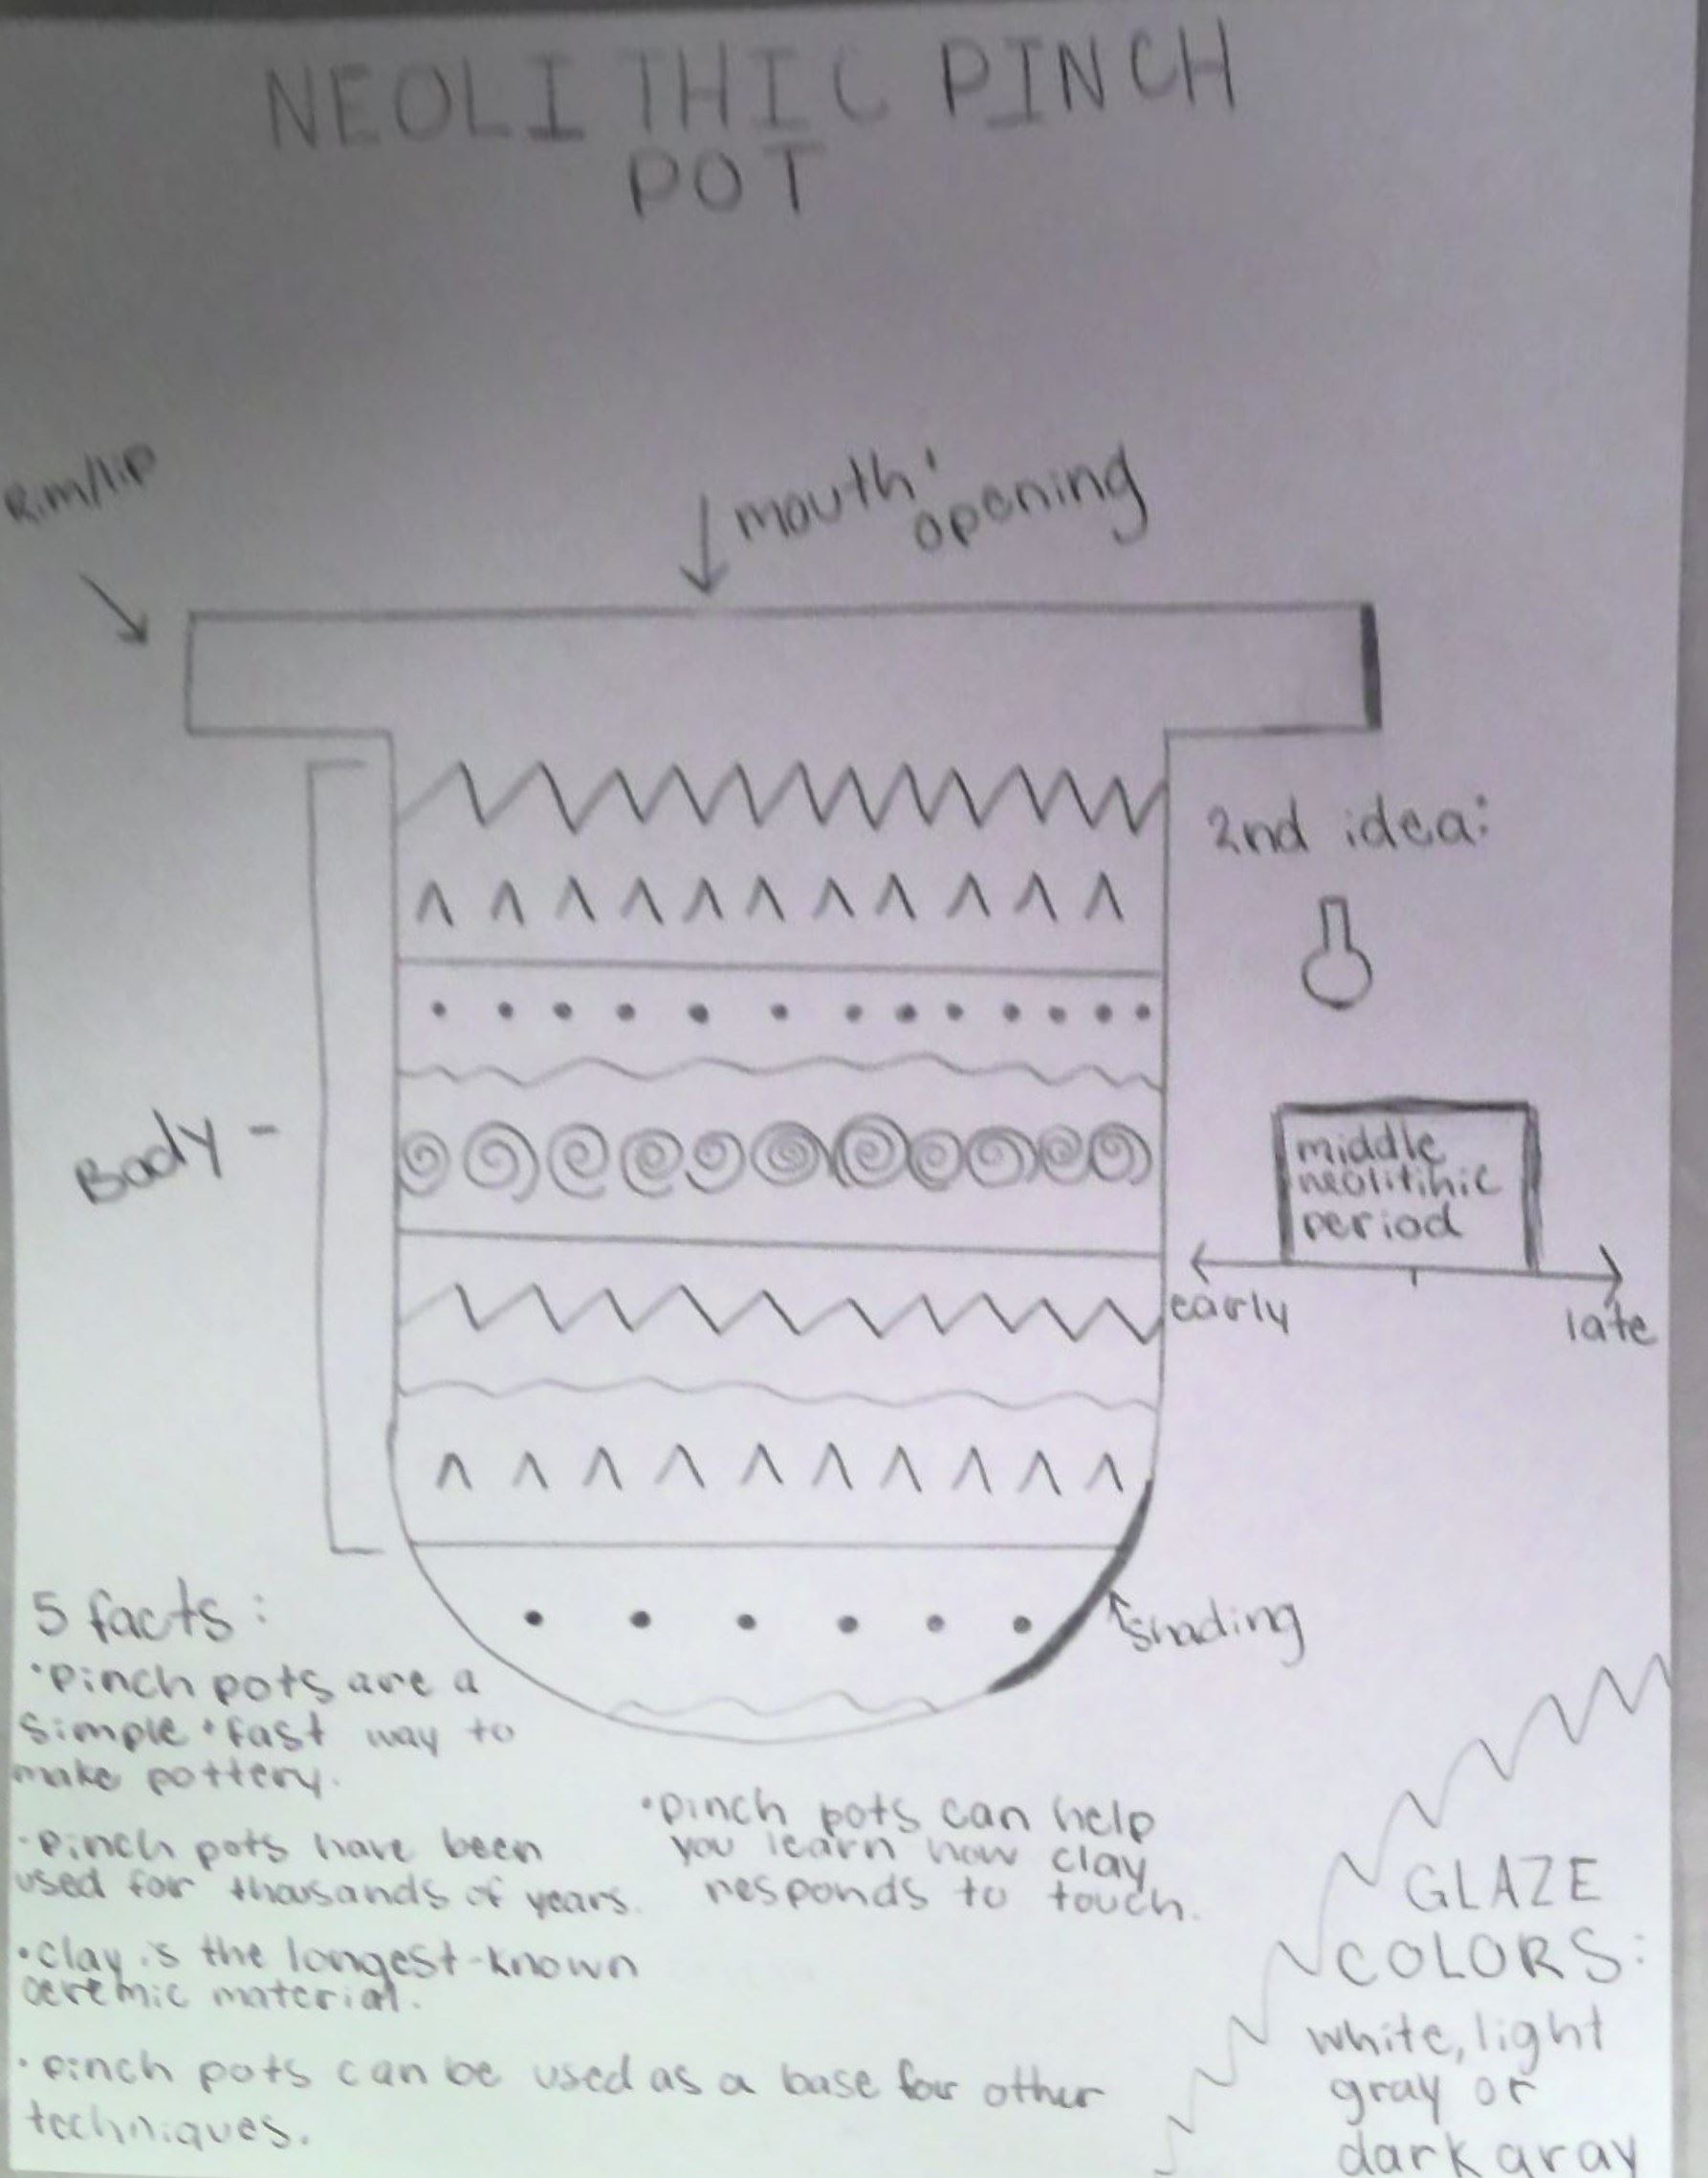 NEOLITHIC PINCH
POT
Rim/lip
mouth
opening
2nd idea:
Body -
middle
neolitihic
period
early
late
shading
5 facts:
• pinch pots are a
simple + fast way to
make pottery.
• pinch pots have been
used for thousands of years.
• clay is the longest-known
ceremic material.
• pinch pots can be used as a base for other
techniques.
• pinch pots can help
you learn how clay
responds to touch.
GLAZE
COLORS:
white, light
gray or
dark gray